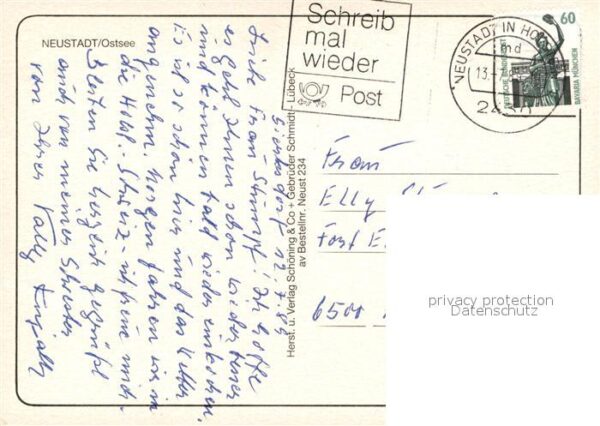 NEUSTADT/Ostsee
Schreib
mal
wieder
Post
NEUSTADT IN HO
md
13.-7.
24
60
DEUTSCHE BUNDESPOST
BAVARIA MÜNCHEN
Herst. u. Verlag Schöning & Co + Gebrüder Schmidt - Lübeck
av Bestellnr. Neust 234
12.7.89
Liebe Frau Stumpf! Ich hoffe
es geht Ihnen schon wieder besser
und können bald wieder einkaufen.
Es ist so schön hier und das Wetter
angenehm. Morgen fahren wir in
die Holst. Schweiz
Seien Sie herzlich gegrüßt
auch von meiner Schwester
von Ihrer
Frau
Elly
6500
privacy protection
Datenschutz